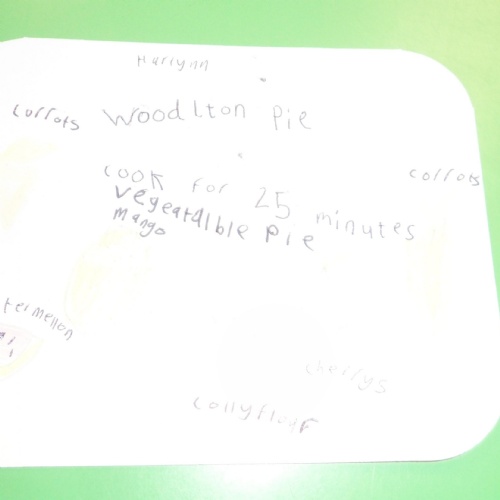 Harlynn
corrots
woodlton Pie
corrots
cook for 25 minutes
vegeatalble Pie
mango
termellon
cherrys
collyflour